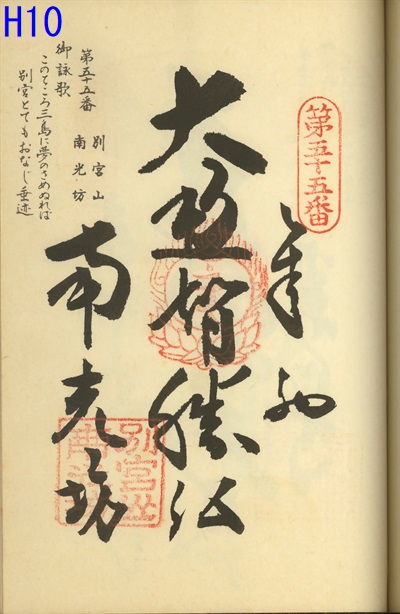 H10
第五十五番
奉納
大通智勝仏
南光坊
別宮山
南光坊
第五十五番
別宮山
南光坊
御詠歌
このところ三島に夢のさめぬれば
別宮とてもおなじ垂迹